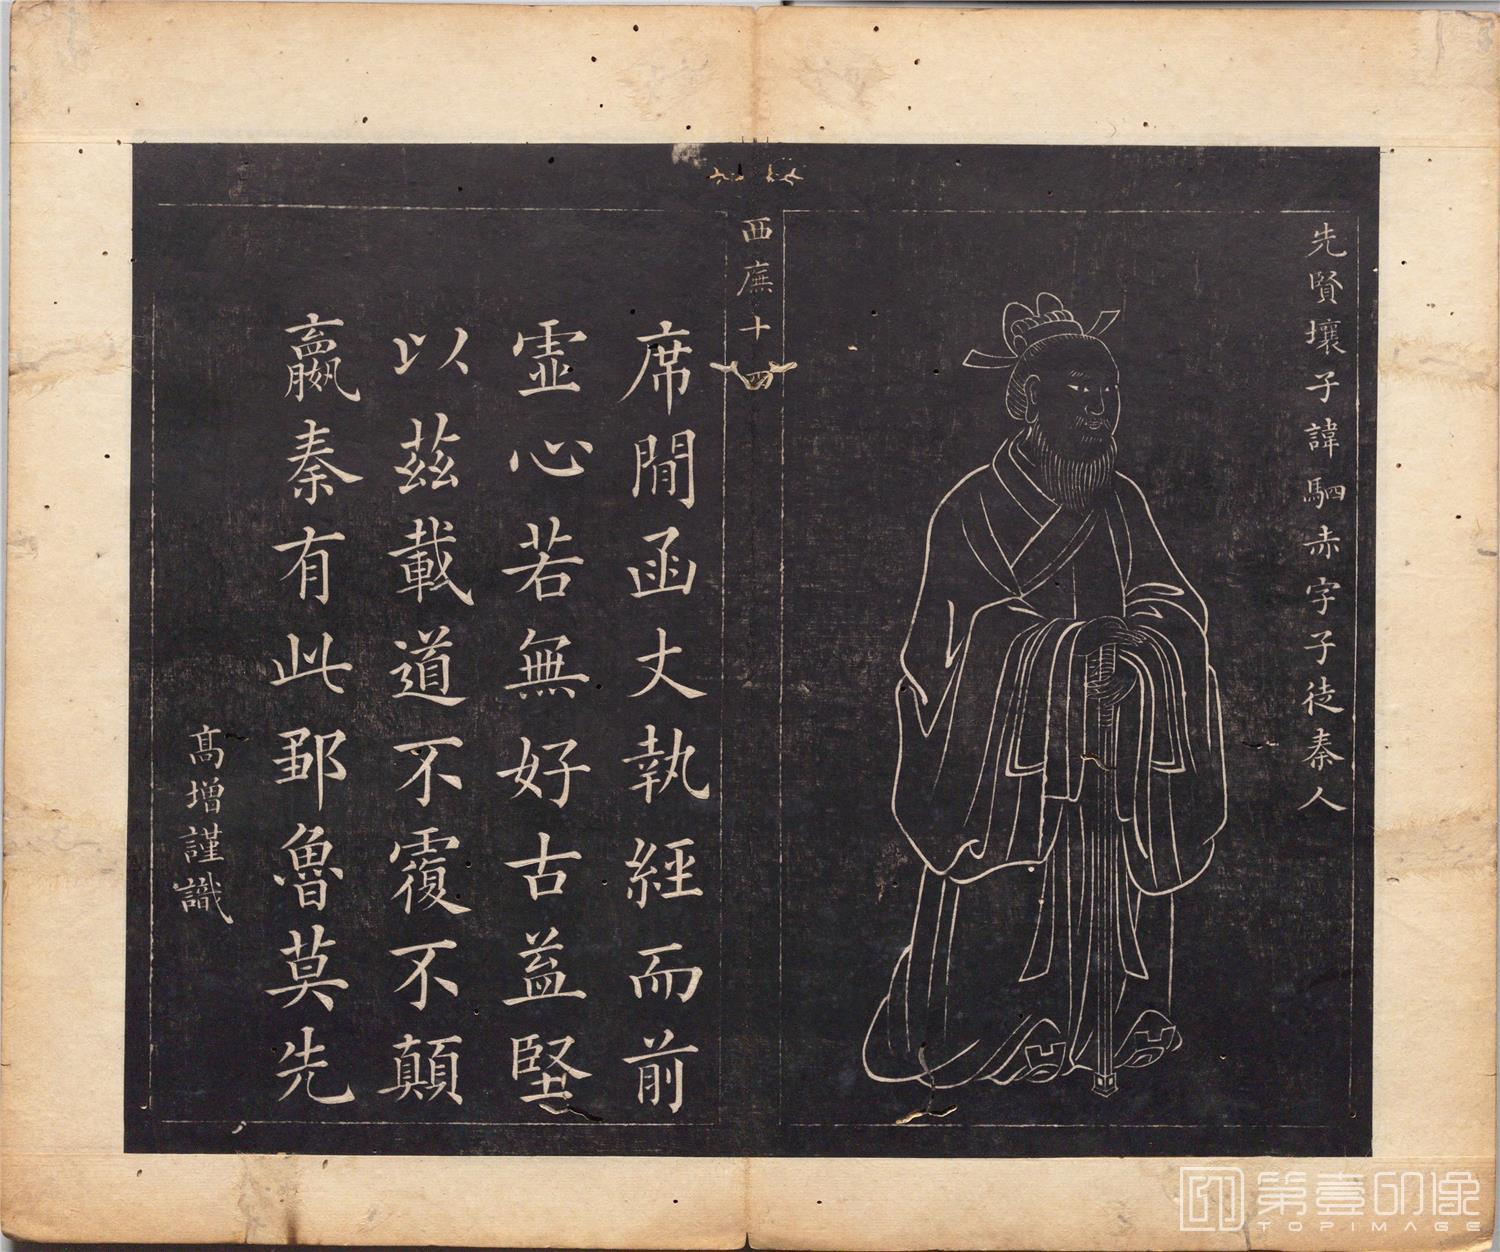 先賢壤子諱駟赤字子徒秦人
西廡十四
席間函丈執經而前
虛心若無好古益堅
以茲載道不覆不顛
嬴秦有此鄒魯莫先
高增謹識
第壹印像
TOPIMAGE